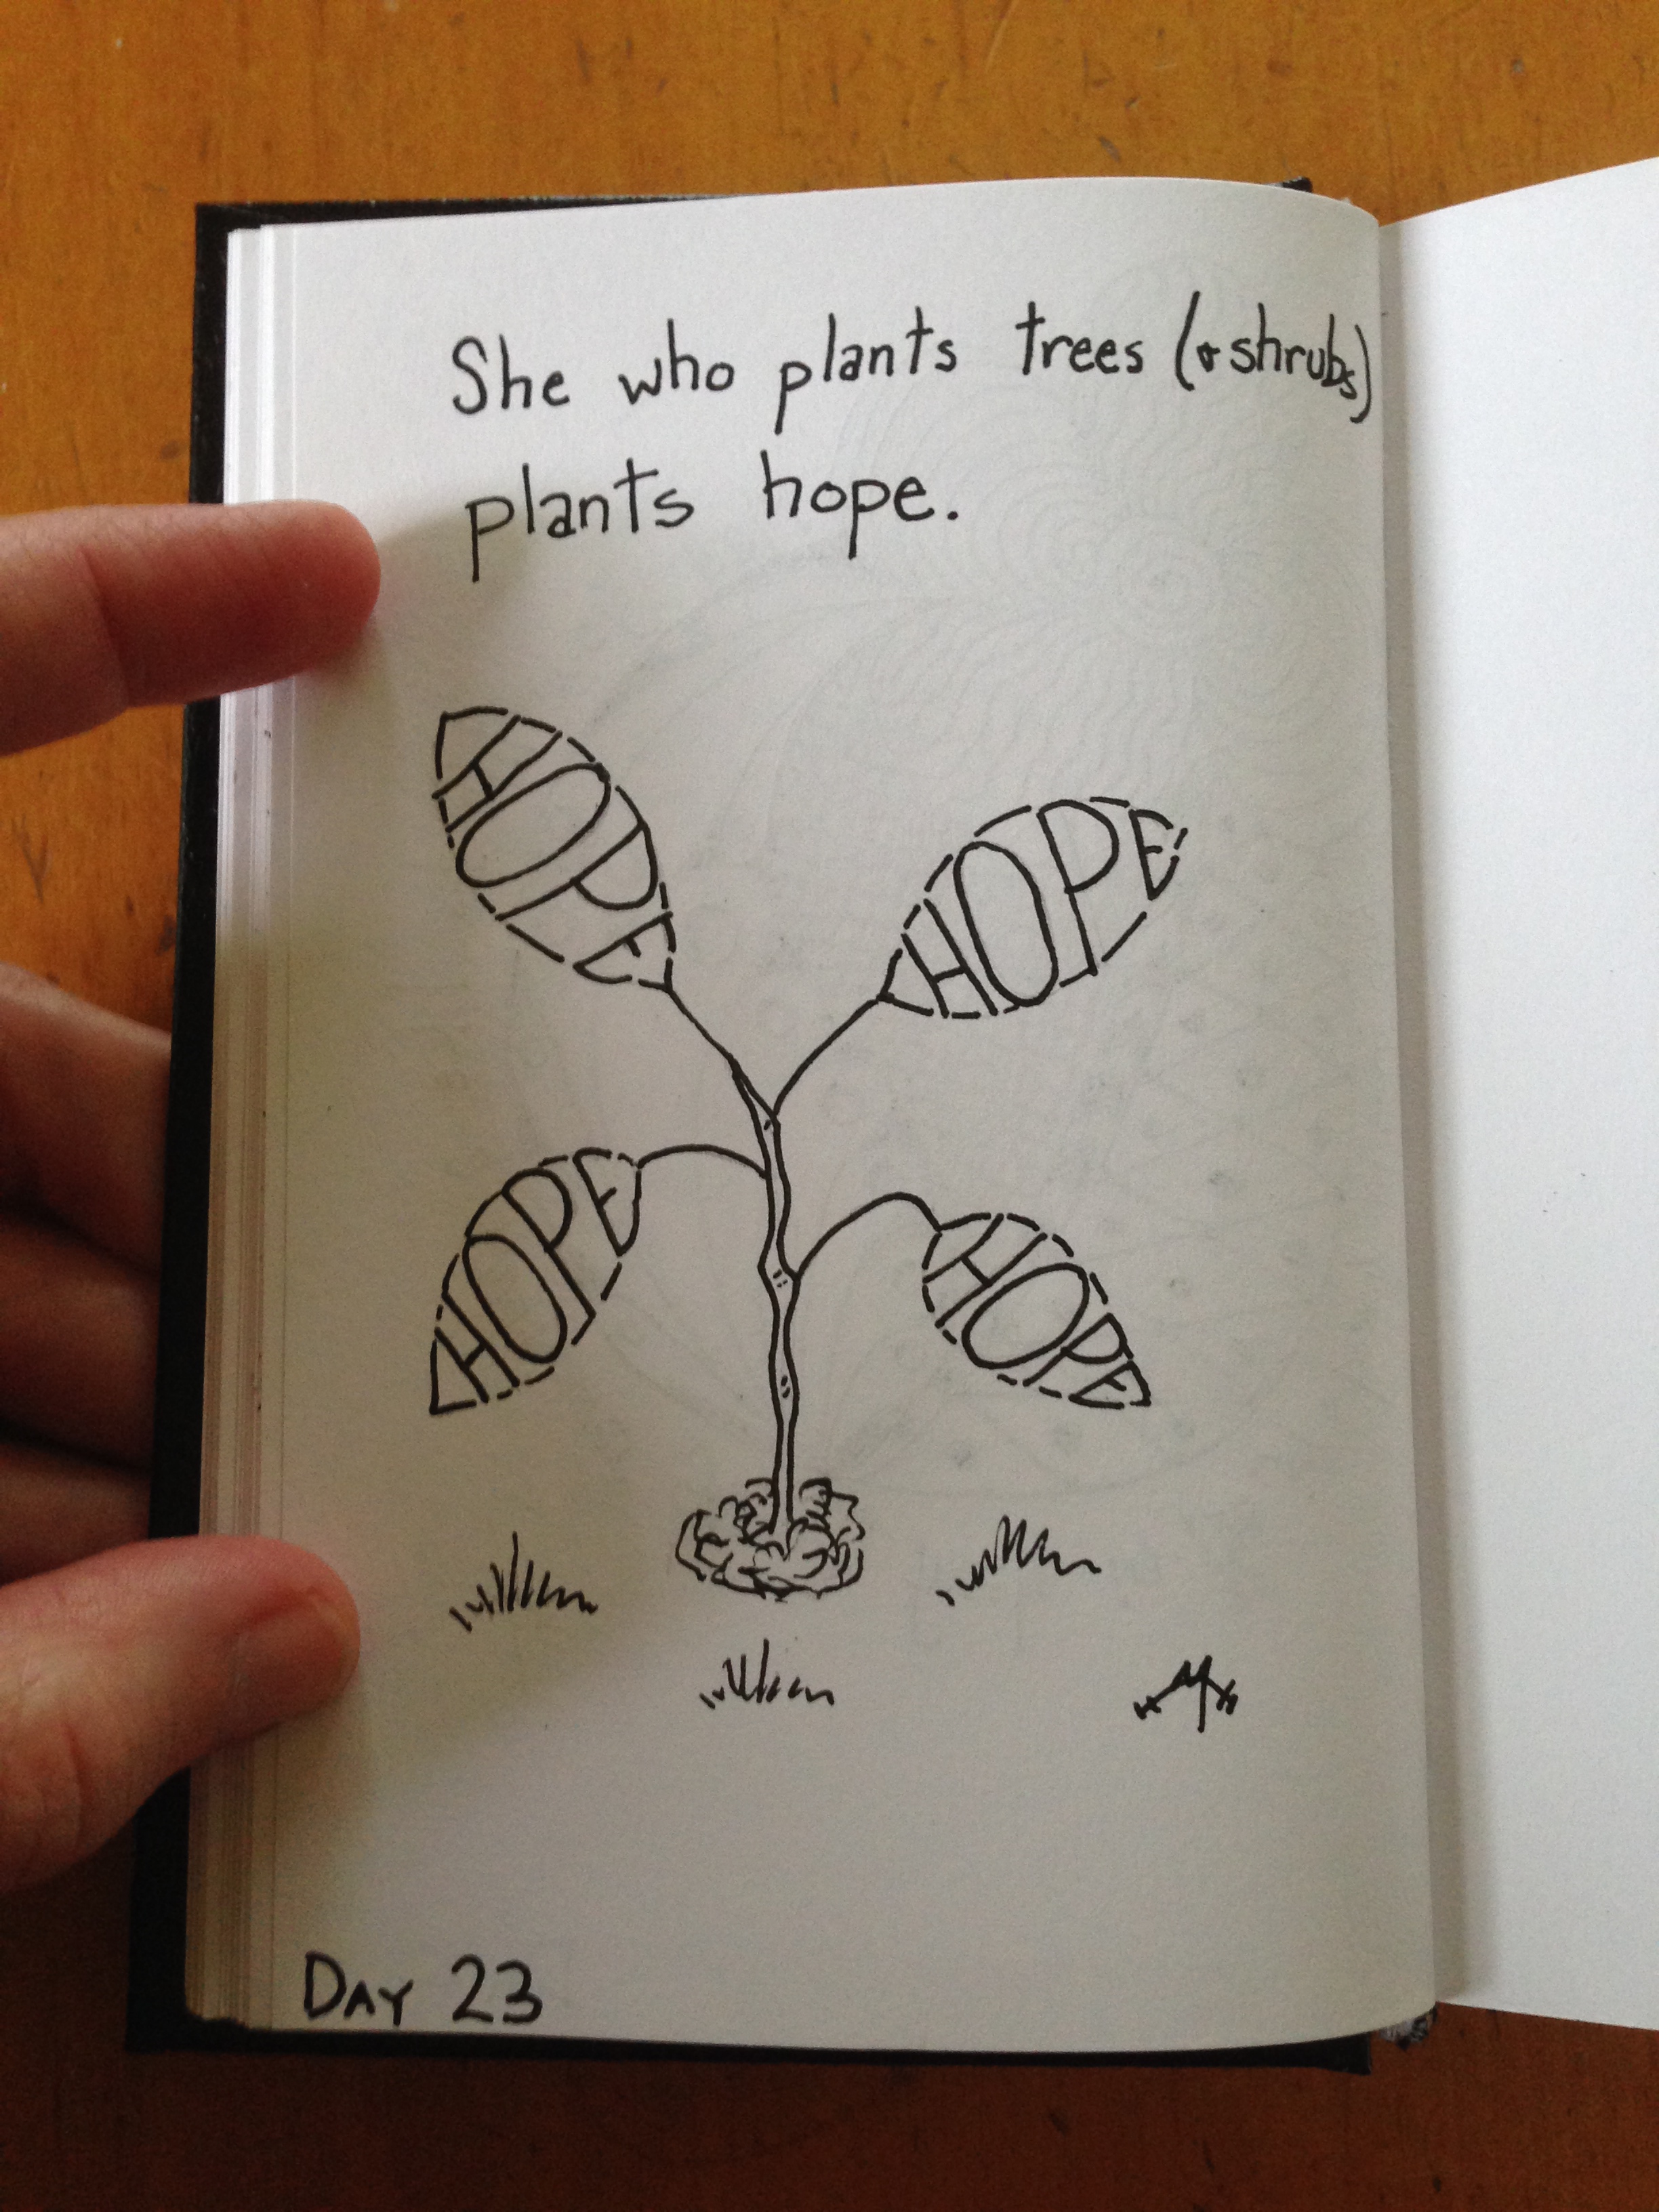 She who plants trees (& shrubs)
plants hope.
HOPE
HOPE
HOPE
HOPE
DAY 23